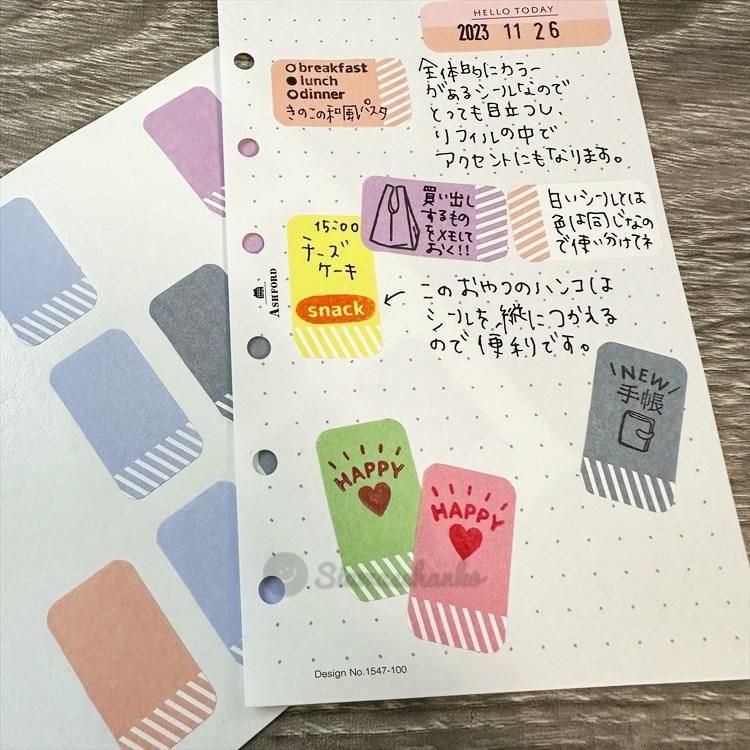 HELLO TODAY
2023 11 26
breakfast
lunch
dinner
きのこの和風パスタ
全体的にカラー
があるシールなので
とっても目立つし、
リフィルの中で
アクセントにもなります。
買い出し
するもの
をメモして
おく!!
白いシールとは
色は同じなの
で使い分けてネ
15:00
チーズ
ケーキ
snack
ASHFORD
このおやつのハンコは
シールを縦につかえる
ので便利です。
NEW
手帳
HAPPY
HAPPY
Design No.1547-100